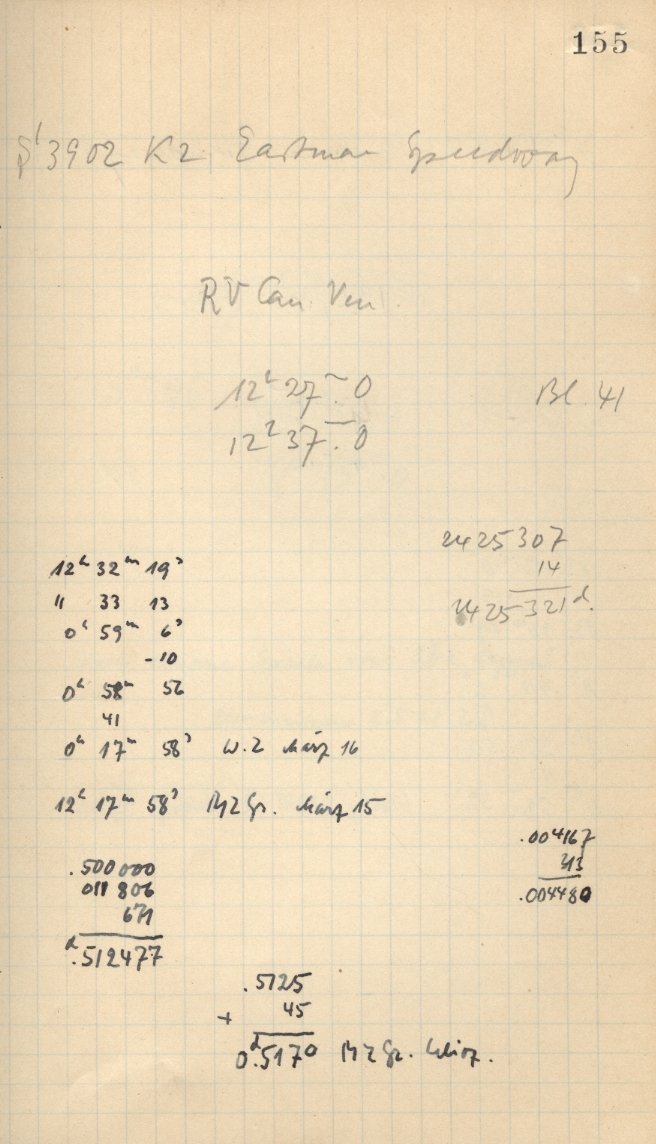 155
S' 3902 K2 Eastman Speedway
RV Can. Ven.
12ʰ 27ᵐ.0
12ʰ 37ᵐ.0
Bl. 41
2425307
14
2425321ᵈ.
12ʰ 32ᵐ 19ˢ
" 33 13
0ʰ 59ᵐ 6ˢ
-10
0ʰ 58ᵐ 56
41
0ʰ 17ᵐ 58ˢ W.Z März 16
12ʰ 17ᵐ 58ˢ MZGr. März 15
.500000
011806
671
ᵈ.512477
.004167
313
.004480
.5125
+ 45
0ᵈ.5170 MZGr.